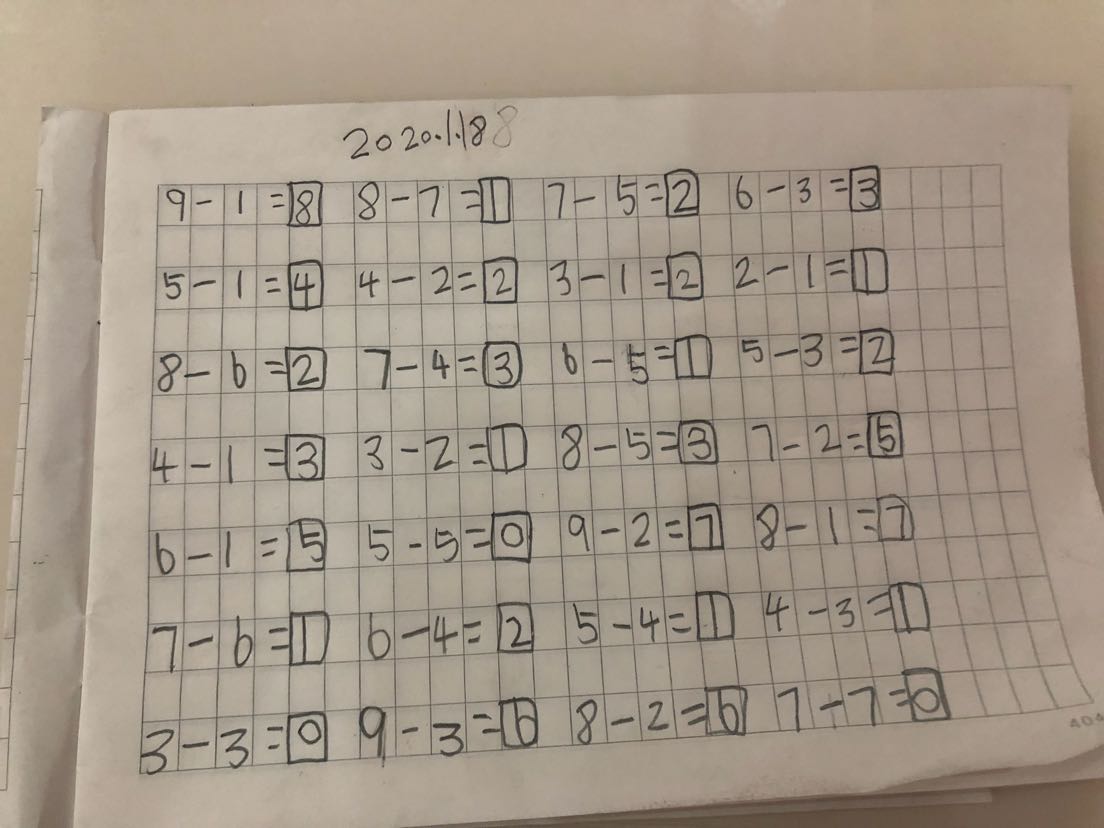 2020.1.18 8
9-1=8 8-7=1 7-5=2 6-3=3
5-1=4 4-2=2 3-1=2 2-1=1
8-6=2 7-4=3 6-5=1 5-3=2
4-1=3 3-2=1 8-5=3 7-2=5
6-1=5 5-5=0 9-2=7 8-1=7
7-6=1 6-4=2 5-4=1 4-3=1
3-3=0 9-3=6 8-2=6 7-7=0